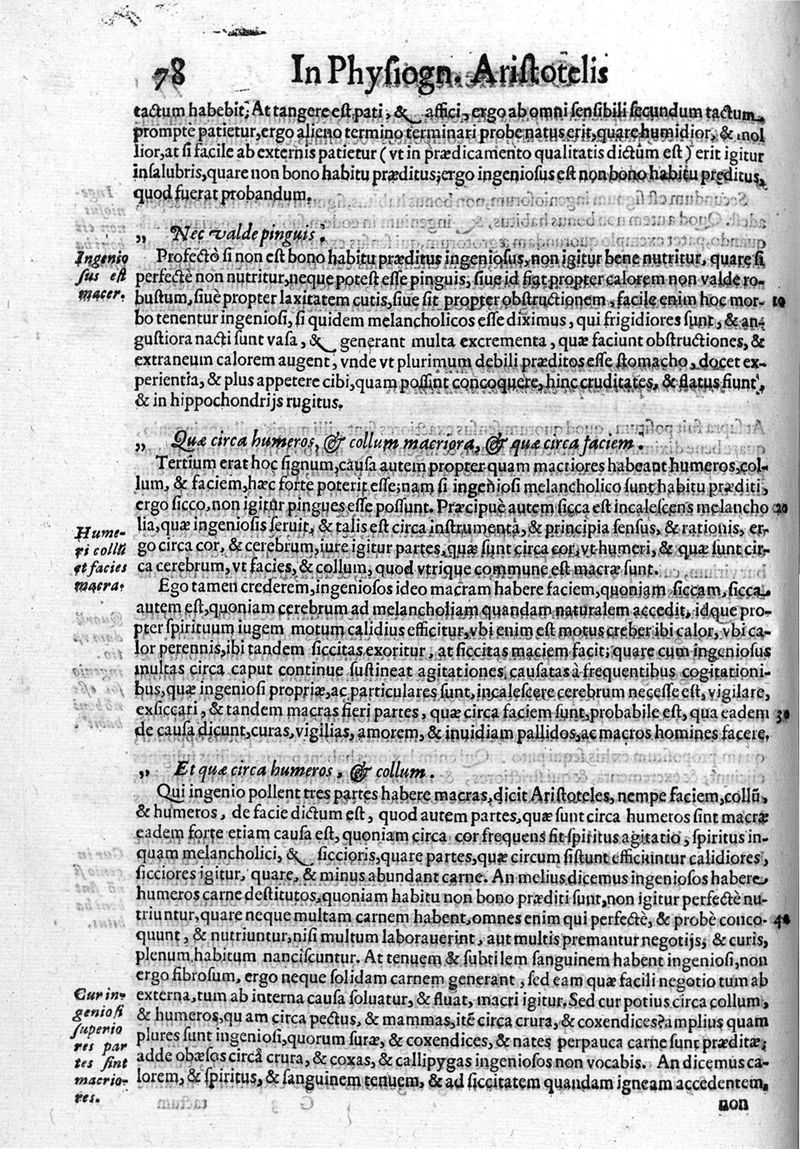 78 In Physiogn. Aristotelis
tactum habebit; At tangere est pati, & affici, ergo ab omni sensibili secundum tactum
prompte patietur, ergo alieno termino terminari probe natus erit, quare humidior, & mol
lior, at si facile ab externis patietur (vt in prædicamento qualitatis dictum est) erit igitur
insalubris, quare non bono habitu præditus; ergo ingeniosus est non bono habitu præditus,
quod fuerat probandum.
„ Nec valde pinguis.
Ingenio
sus est
macer.
Profectò si non est bono habitu præditus ingeniosus, non igitur bene nutritur, quare si
perfectè non nutritur, neque potest esse pinguis, siue id fiat propter calorem non valde ro-
bustum, siuè propter laxitatem cutis, siue sit propter obstructionem, facile enim hoc mor- 10
bo tenentur ingeniosi, si quidem melancholicos esse diximus, qui frigidiores sunt, & an-
gustiora nacti sunt vasa, & generant multa excrementa, quæ faciunt obstructiones, &
extraneum calorem augent, vnde vt plurimum debili præditos esse stomacho, docet ex-
perientia, & plus appetere cibi, quam possint concoquere, hinc cruditates, & flatus fiunt,
& in hippochondrijs rugitus.
„ Quæ circa humeros, & collum macriora, & quæ circa faciem.
Tertium erat hoc signum, causa autem propter quam mactiores habeant humeros, col-
lum, & faciem, hæc forte poterit esse; nam si ingeniosi melancholico sunt habitu præditi,
ergo sicco, non igitur pingues esse possunt. Præcipuè autem sicca est incalescens melancho 20
lia, quæ ingeniosis seruit, & talis est circa instrumenta, & principia sensus, & rationis, er-
go circa cor, & cerebrum, iure igitur partes, quæ sunt circa cor, vt humeri, & quæ sunt cir-
ca cerebrum, vt facies, & collum, quod vtrique commune est macræ sunt.
Hume-
ri collũ
et facies
macra.
Ego tamen crederem, ingeniosos ideo macram habere faciem, quoniam siccam, sicca
autem est, quoniam cerebrum ad melancholiam quandam naturalem accedit, idque pro-
pter spirituum iugem motum calidius efficitur, vbi enim est motus creber ibi calor, vbi ca-
lor perennis, ibi tandem siccitas exoritur, at siccitas maciem facit; quare cum ingeniosus
multas circa caput continue sustineat agitationes, causatas à frequentibus cogitationi-
bus, quæ ingeniosi propriæ, ac particulares sunt, incalescere cerebrum necesse est, vigilare,
exsiccari, & tandem macras fieri partes, quæ circa faciem sunt, probabile est, qua eadem 30
de causa dicunt, curas, vigilias, amorem, & inuidiam pallidos, ac macros homines facere.
„ Et quæ circa humeros, & collum.
Qui ingenio pollent tres partes habere macras, dicit Aristoteles, nempe faciem, collũ,
& humeros, de facie dictum est, quod autem partes, quæ sunt circa humeros sint macræ
eadem forte etiam causa est, quoniam circa cor frequens fit spiritus agitatio, spiritus in-
quam melancholici, & siccioris, quare partes, quæ circum sistunt efficiuntur calidiores,
sicciores igitur, quare, & minus abundant carne. An melius dicemus ingeniosos habere
humeros carne destitutos, quoniam habitu non bono præditi sunt, non igitur perfectè nu-
triuntur, quare neque multam carnem habent, omnes enim qui perfectè, & probè conco- 40
quunt, & nutriuntur, nisi multum laborauerint, aut multis premantur negotijs, & curis,
plenum habitum nanciscuntur. At tenuem & subtilem sanguinem habent ingeniosi, non
ergo fibrosum, ergo neque solidam carnem generant, sed eam quæ facili negotio tum ab
externa, tum ab interna causa soluatur, & fluat, macri igitur. Sed cur potius circa collum,
& humeros, quam circa pectus, & mammas, itẽ circa crura, & coxendices? amplius quam
plures sunt ingeniosi, quorum suræ, & coxendices, & nates perpauca carne sunt præditæ;
adde obæsos circa crura, & coxas, & callipygas ingeniosos non vocabis. An dicemus ca-
lorem, & spiritus, & sanguinem tenuem, & ad siccitatem quandam igneam accedentem,
Cur in-
geniosi
superio
res par
tes sint
macrio-
res.
non